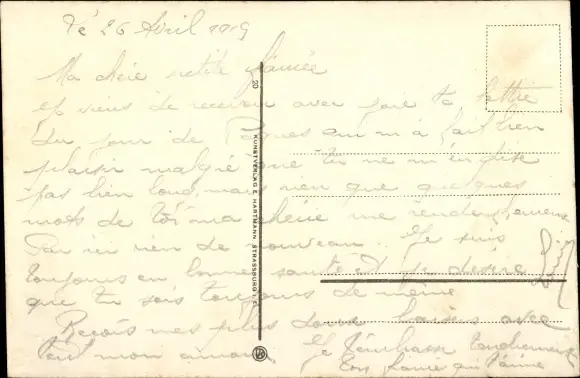 Le 26 Avril 1919
Ma chère petite fiancée
Je viens de recevoir avec joie ta lettre
du jour de Pâques qui m'a fait bien
plaisir malgré que tu ne m'en dise
pas bien long, mais rien que quelques
mots de toi ma chérie me rende heureux
Par ici rien de nouveau. Je suis
toujours en bonne santé et je désire
que tu sois toujours de même
Reçois mes plus doux baisers avec
tout mon amour Je t'embrasse tendrement
Ton fiancé qui t'aime
20
KUNSTVERLAG E. HARTMANN, STRASSBURG